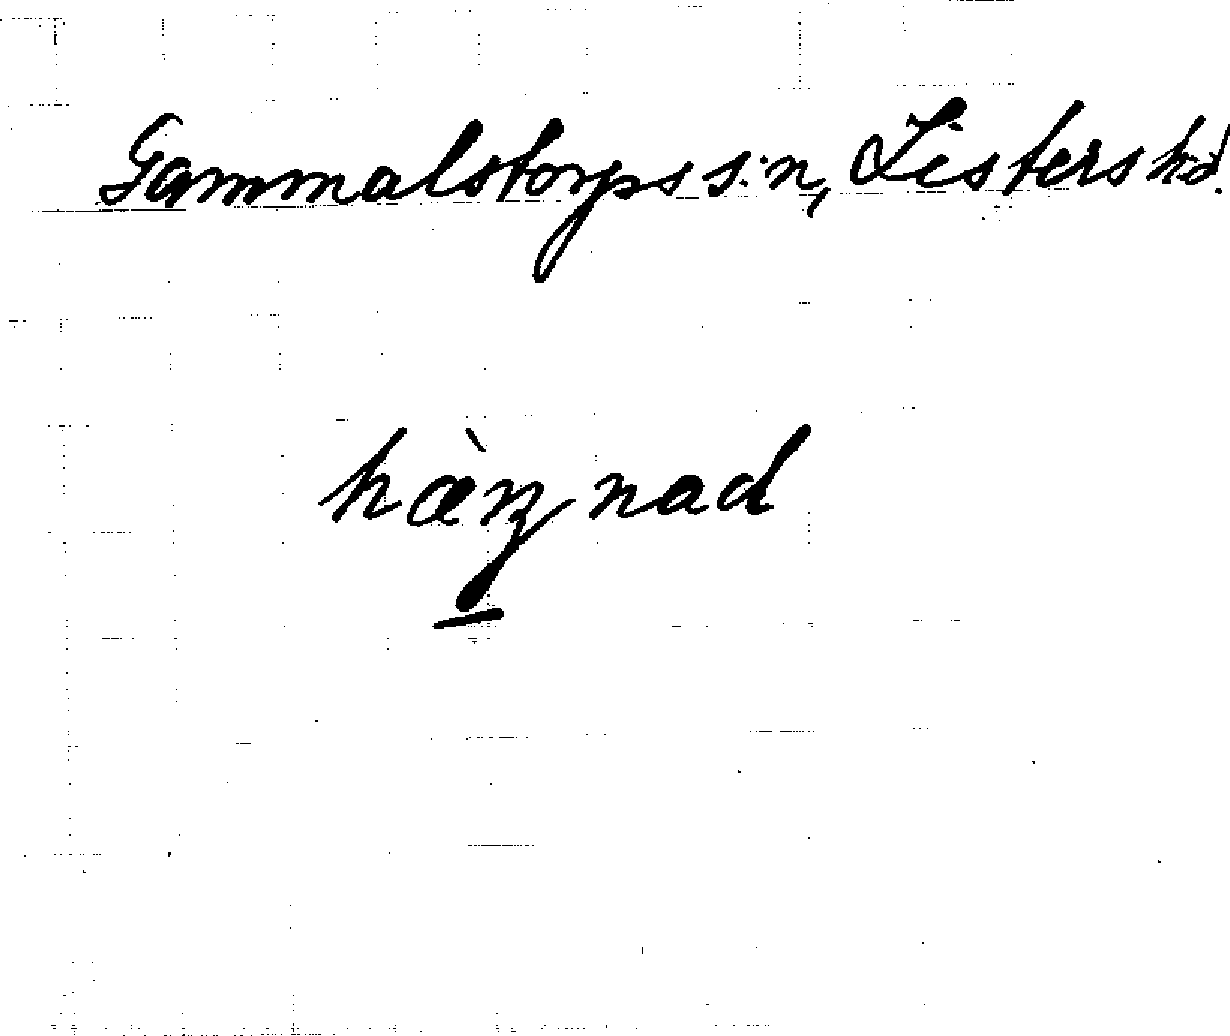 Gammalstorps s:n, Listers hd.
hæ̀rnad